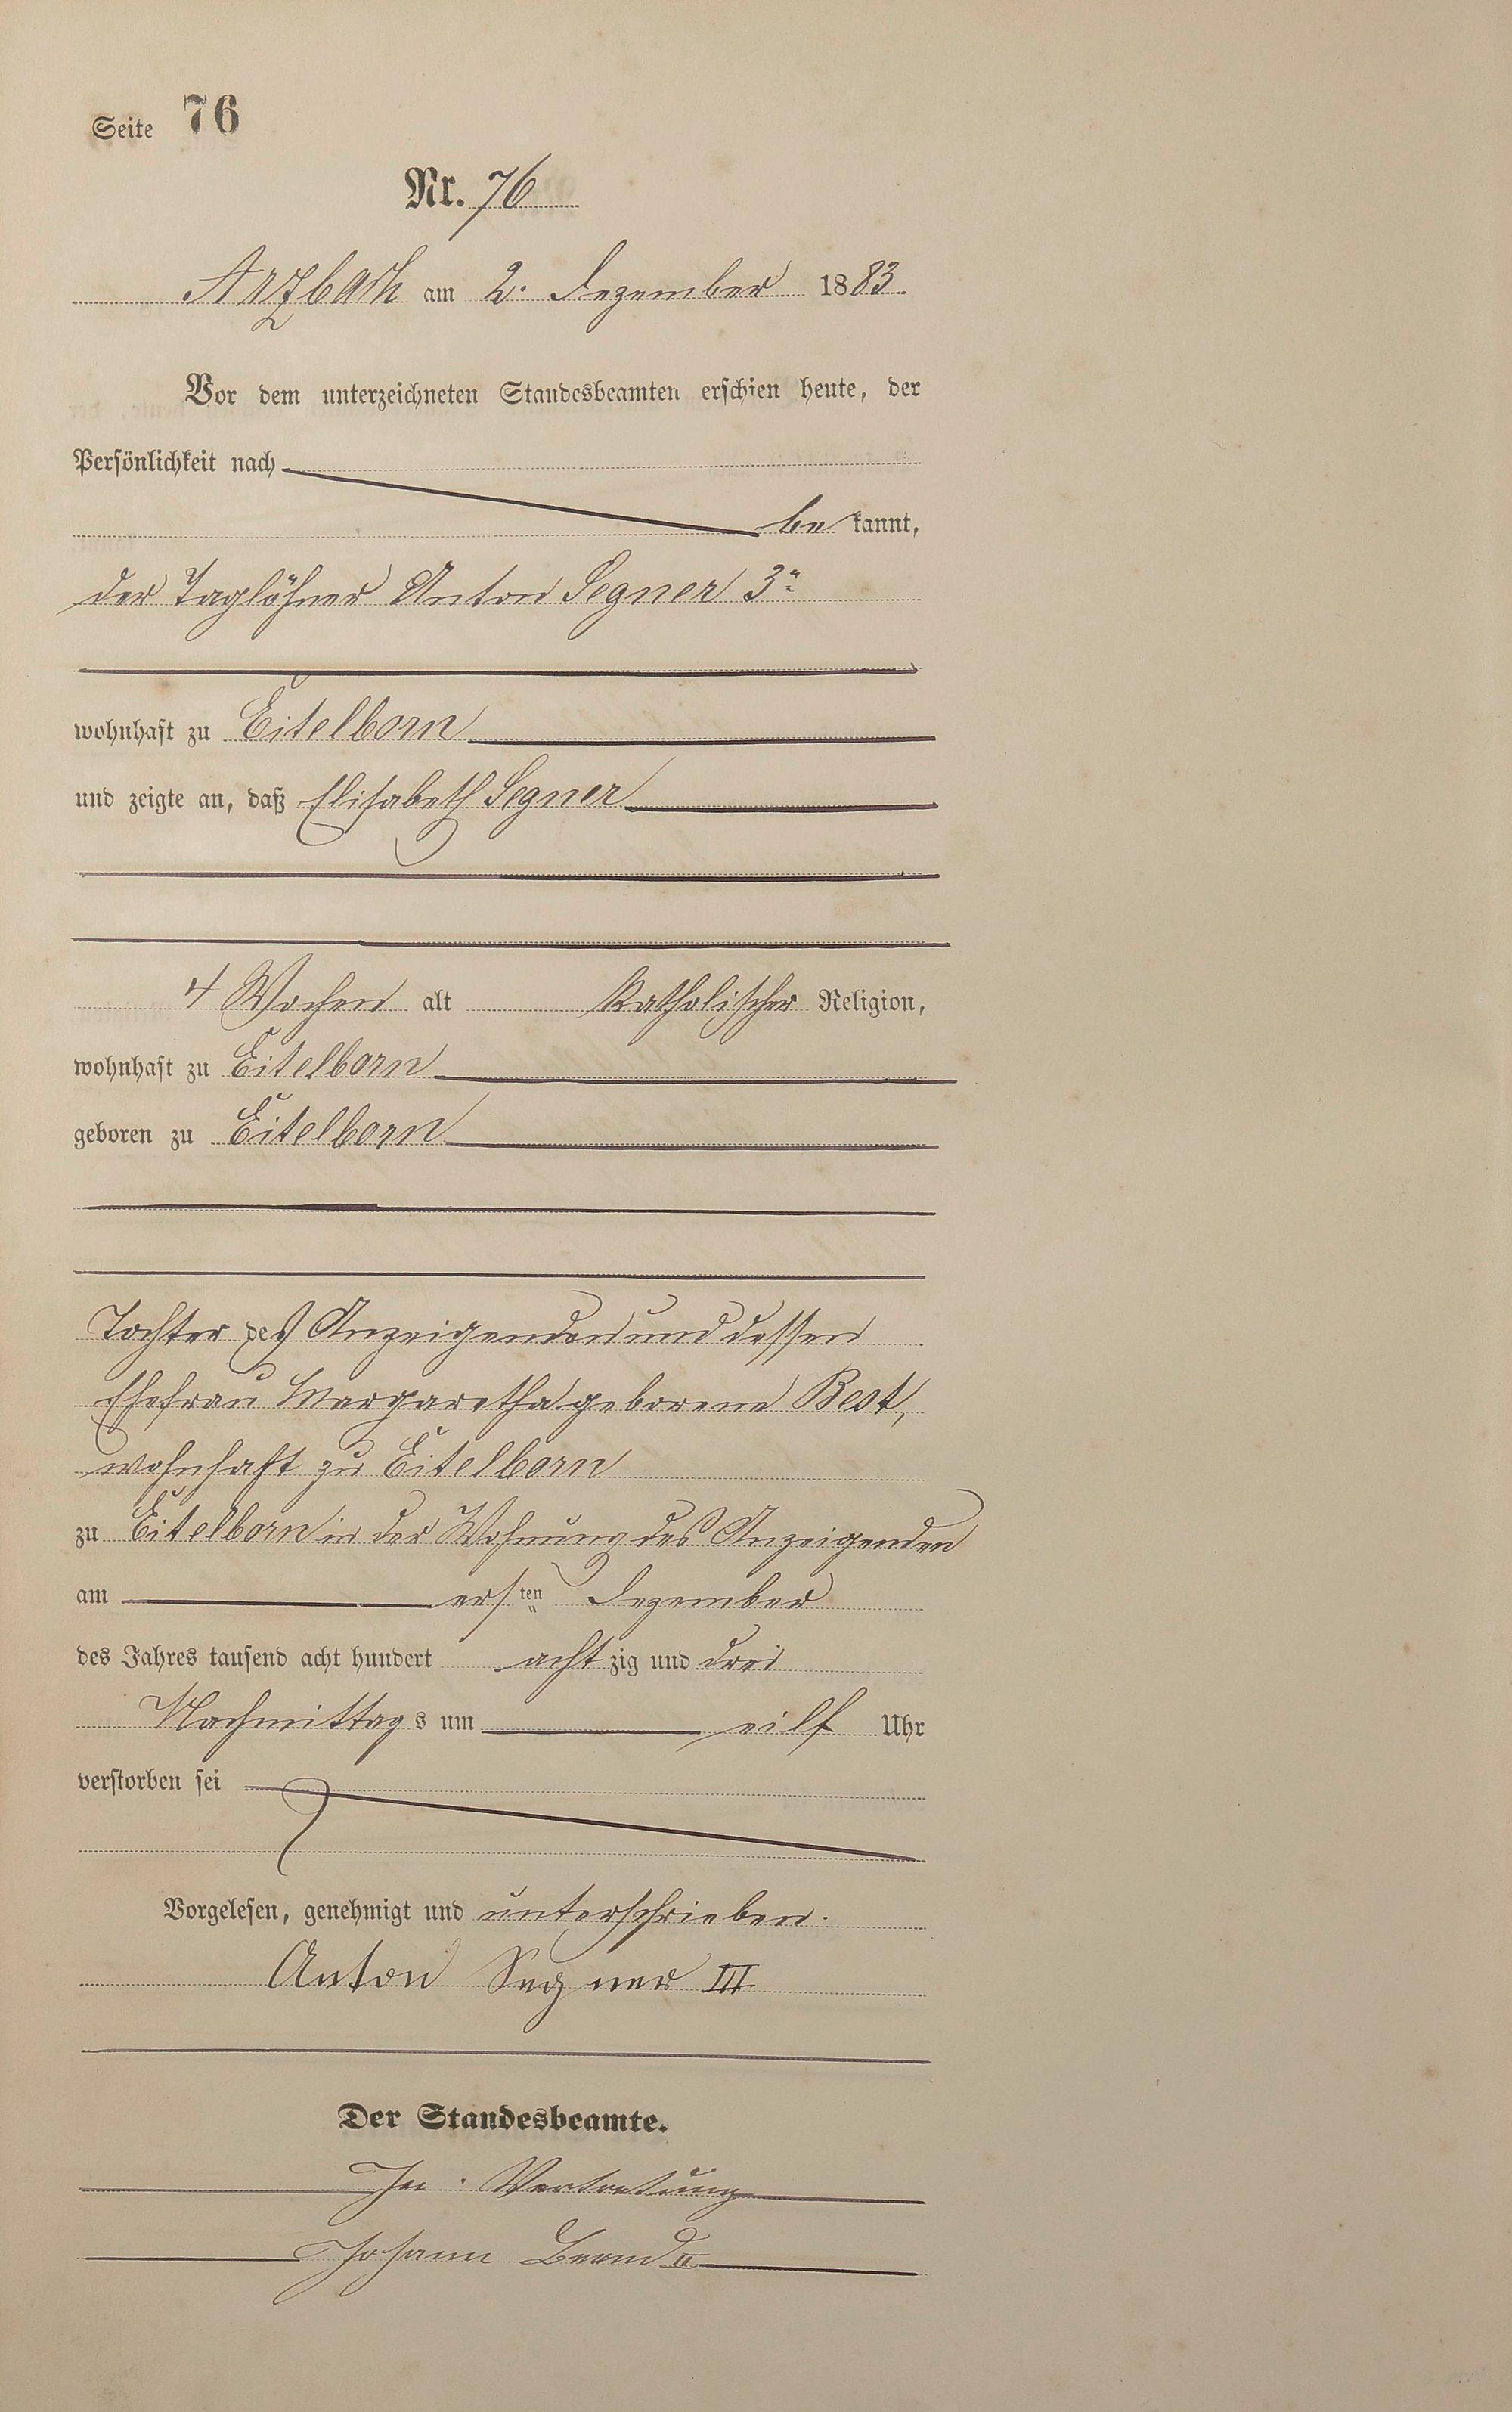 Seite 76
Nr. 76
Arzbach am 2. Dezember 1883
Vor dem unterzeichneten Standesbeamten erschien heute, der
Persönlichkeit nach
be kannt,
der Taglöhner Anton Segner 3"
wohnhaft zu Eitelborn
und zeigte an, daß Elisabeth Segner
4 Wochen alt katholischer Religion,
wohnhaft zu Eitelborn
geboren zu Eitelborn
Tochter des Anzeigenden und dessen
Ehefrau Margaretha geborene Best,
wohnhaft zu Eitelborn
zu Eitelborn in der Wohnung des Anzeigenden
am ersten Dezember
des Jahres tausend acht hundert achtzig und drei
Nachmittags um eilf Uhr
verstorben sei
Vorgelesen, genehmigt und unterschrieben.
Anton Segner III
Der Standesbeamte.
In Vertretung
Johann Bernd II